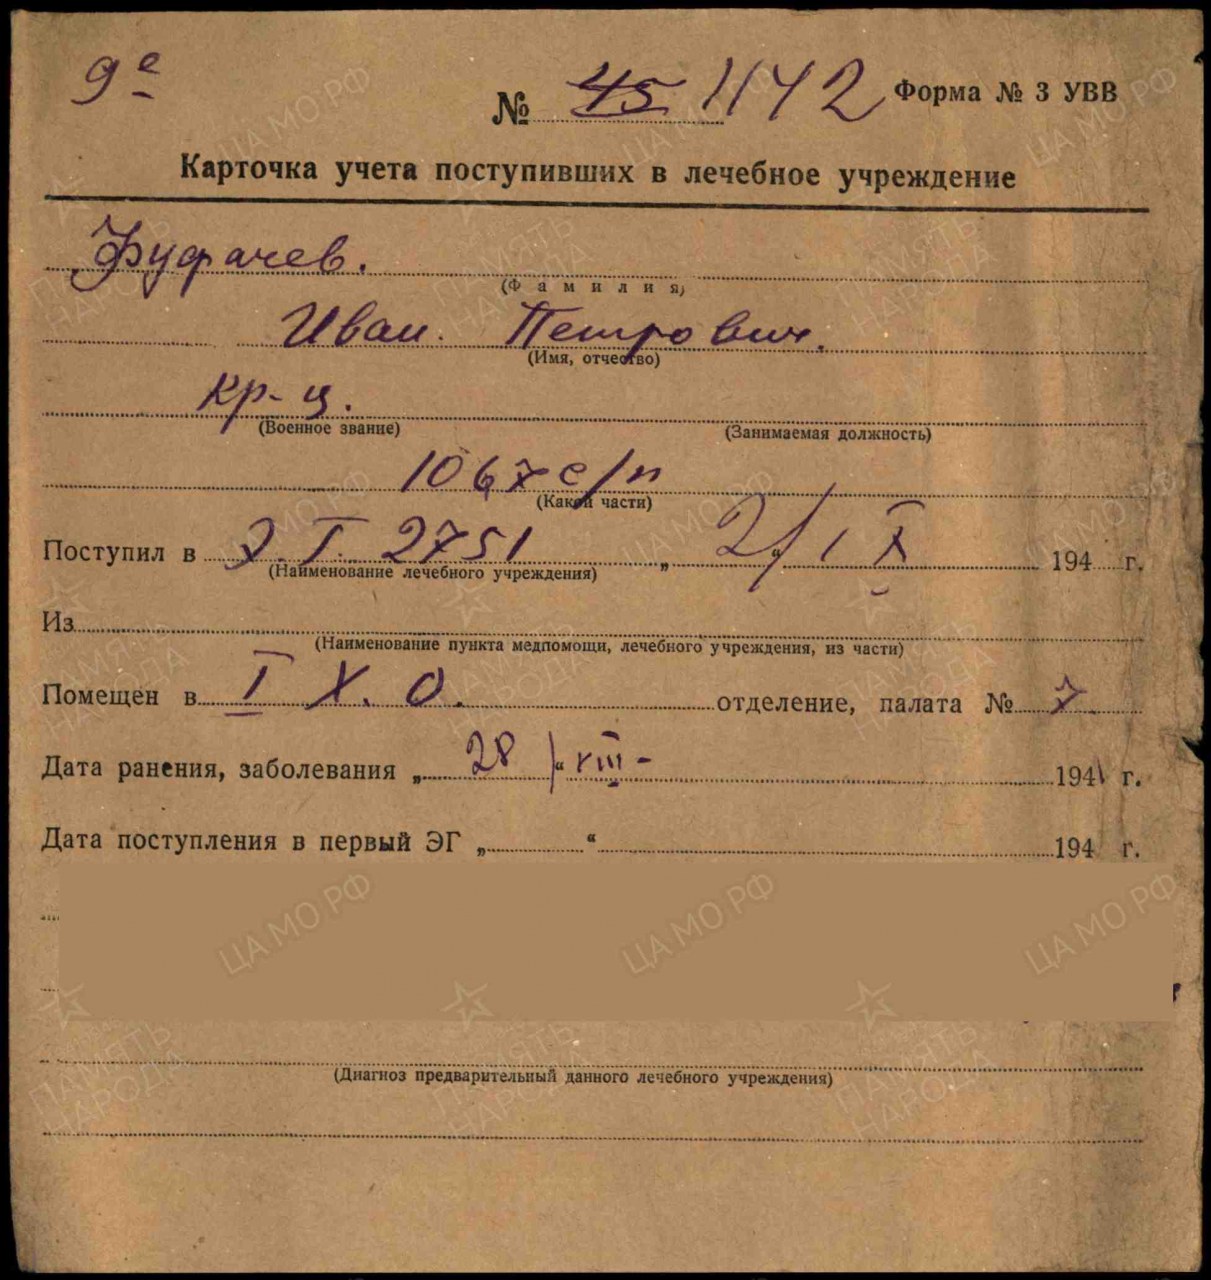 9е
№ 45 1142 Форма № 3 УВВ
Карточка учета поступивших в лечебное учреждение
Фуфачев.
(Фамилия)
Иван. Петрович.
(Имя, отчество)
кр-ц.
(Военное звание) (Занимаемая должность)
1067 с/п
(Какой части)
Поступил в Э.Г. 2751 „ 2/IX 194 г.
(Наименование лечебного учреждения)
Из
(Наименование пункта медпомощи, лечебного учреждения, из части)
Помещен в I Х.О. отделение, палата № 7
Дата ранения, заболевания „ 28 “ VIII- 1941 г.
Дата поступления в первый ЭГ „ “ 194 г.
(Диагноз предварительный данного лечебного учреждения)
ЦА МО РФ
ПАМЯТЬ НАРОДА